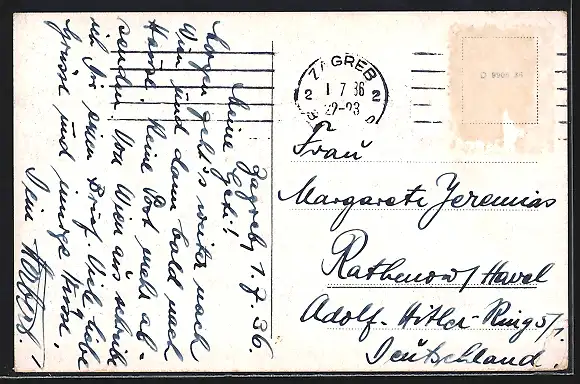 Zagreb, 1.7.36.
Meine Geti!
Morgen geht's weiter nach
Wien und dann bald nach
Hause. Keine Post mehr ab-
senden. Von Wien aus schreibe
ich Dir einen Brief. Viele liebe
Grüsse und innige Küsse,
Dein
ZAGREB
2 1 7 36 2
22-23
Frau
Margarete Jeremias
Rathenow/Havel
Adolf-Hitler-Ring 5/I.
Deutschland.